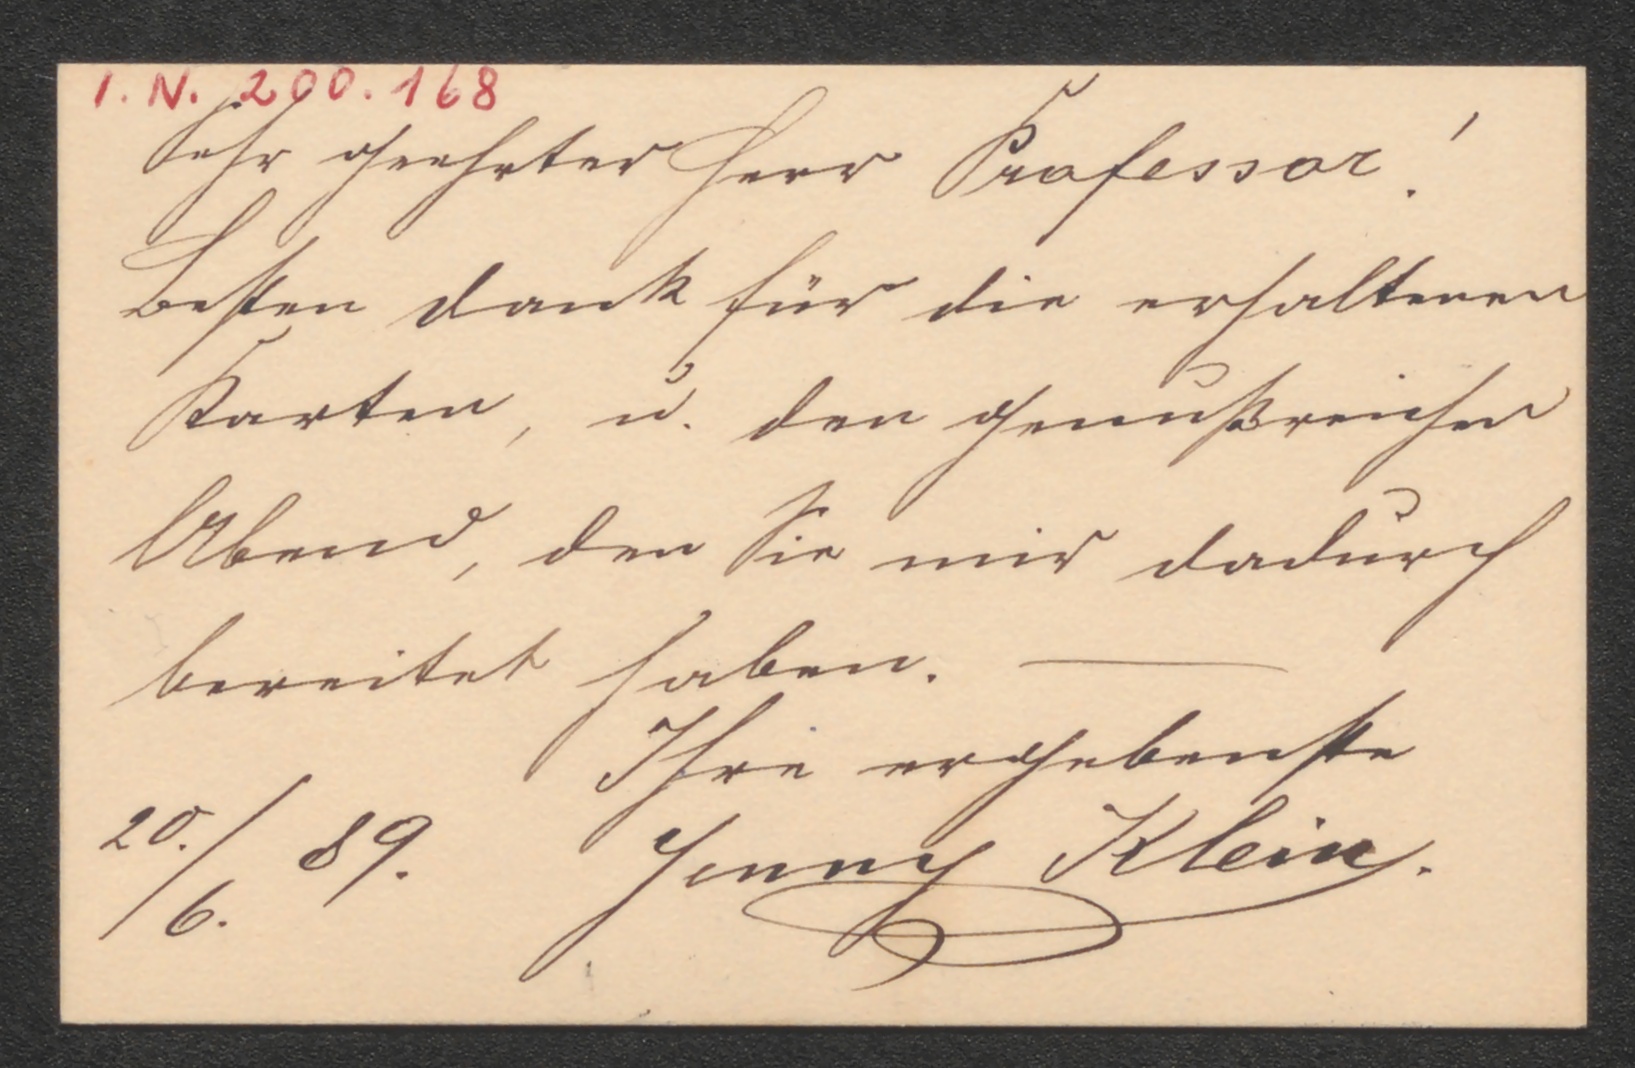 I. N. 200.168
Sehr geehrter Herr Professor!
Besten Dank für die erhaltenen
Karten, u. den genußreichen
Abend, den Sie mir dadurch
bereitet haben. —
Ihre ergebenste
20./6. 89. Jenny Klein.